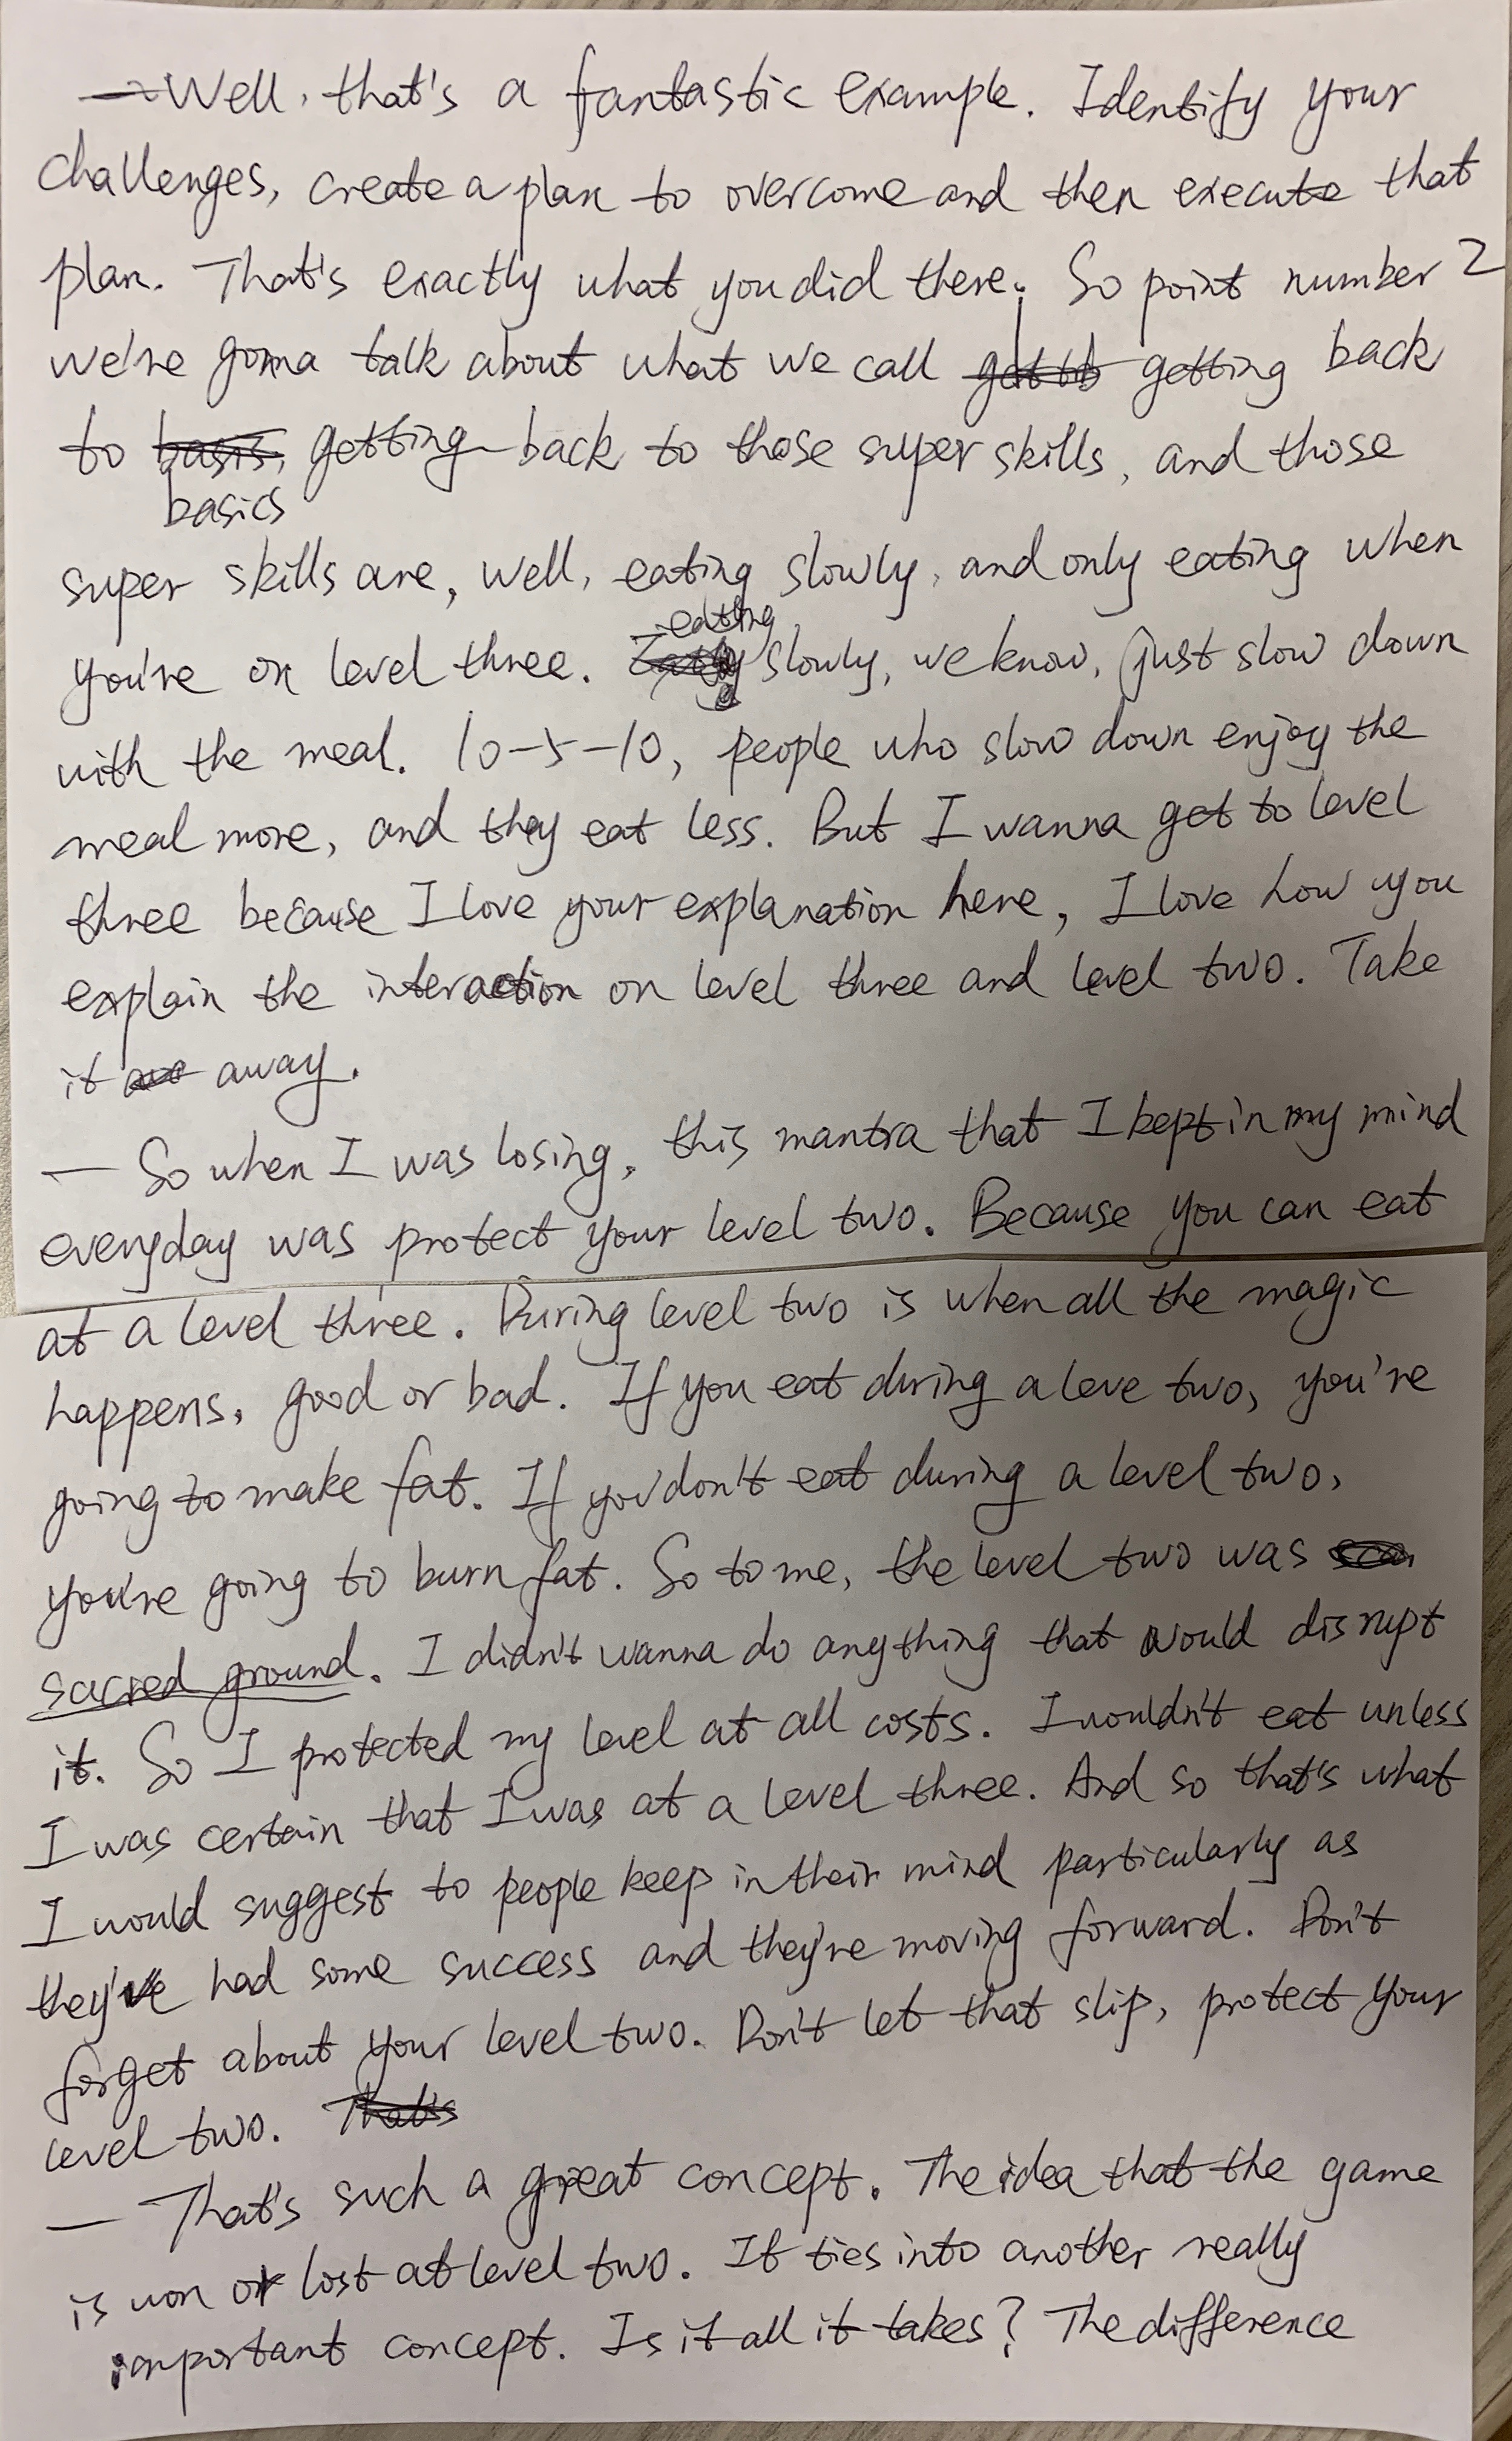 — Well, that's a fantastic example. Identify your
challenges, create a plan to overcome and then execute that
plan. That's exactly what you did there. So point number 2
we're gonna talk about what we call getting back
to basics, getting back to those super skills, and those
super skills are, well, eating slowly, and only eating when
you're on level three. eating slowly, we know, just slow down
with the meal. 10-5-10, people who slow down enjoy the
meal more, and they eat less. But I wanna get to level
three because I love your explanation here, I love how you
explain the interaction on level three and level two. Take
it away.
— So when I was losing, this mantra that I kept in my mind
everyday was protect your level two. Because you can eat
at a level three. During level two is when all the magic
happens, good or bad. If you eat during a leve two, you're
going to make fat. If you don't eat during a level two,
you're going to burn fat. So to me, the level two was
sacred ground. I didn't wanna do anything that would disrupt
it. So I protected my level at all costs. I wouldn't eat unless
I was certain that I was at a level three. And so that's what
I would suggest to people keep in their mind particularly as
they've had some success and they're moving forward. Don't
forget about your level two. Don't let that slip, protect your
level two.
— That's such a great concept. The idea that the game
is won or lost at level two. It ties into another really
important concept. Is it all it takes? The difference